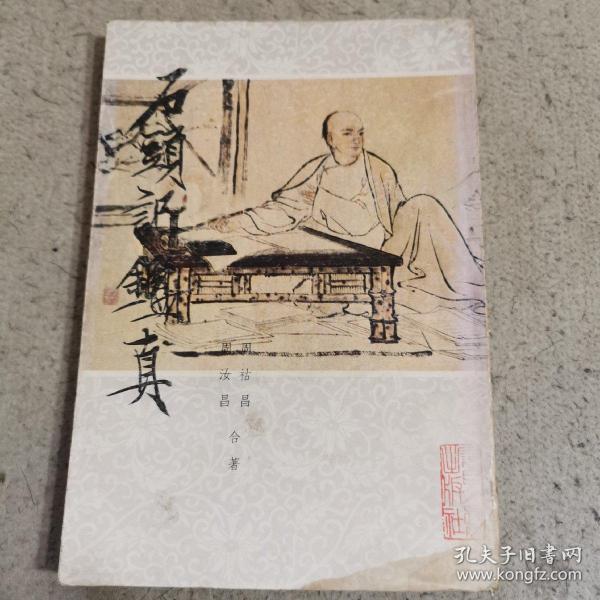 石頭記鑑真
周祜昌
周汝昌
合著
出版社
孔夫子旧书网
www.kongfz.com